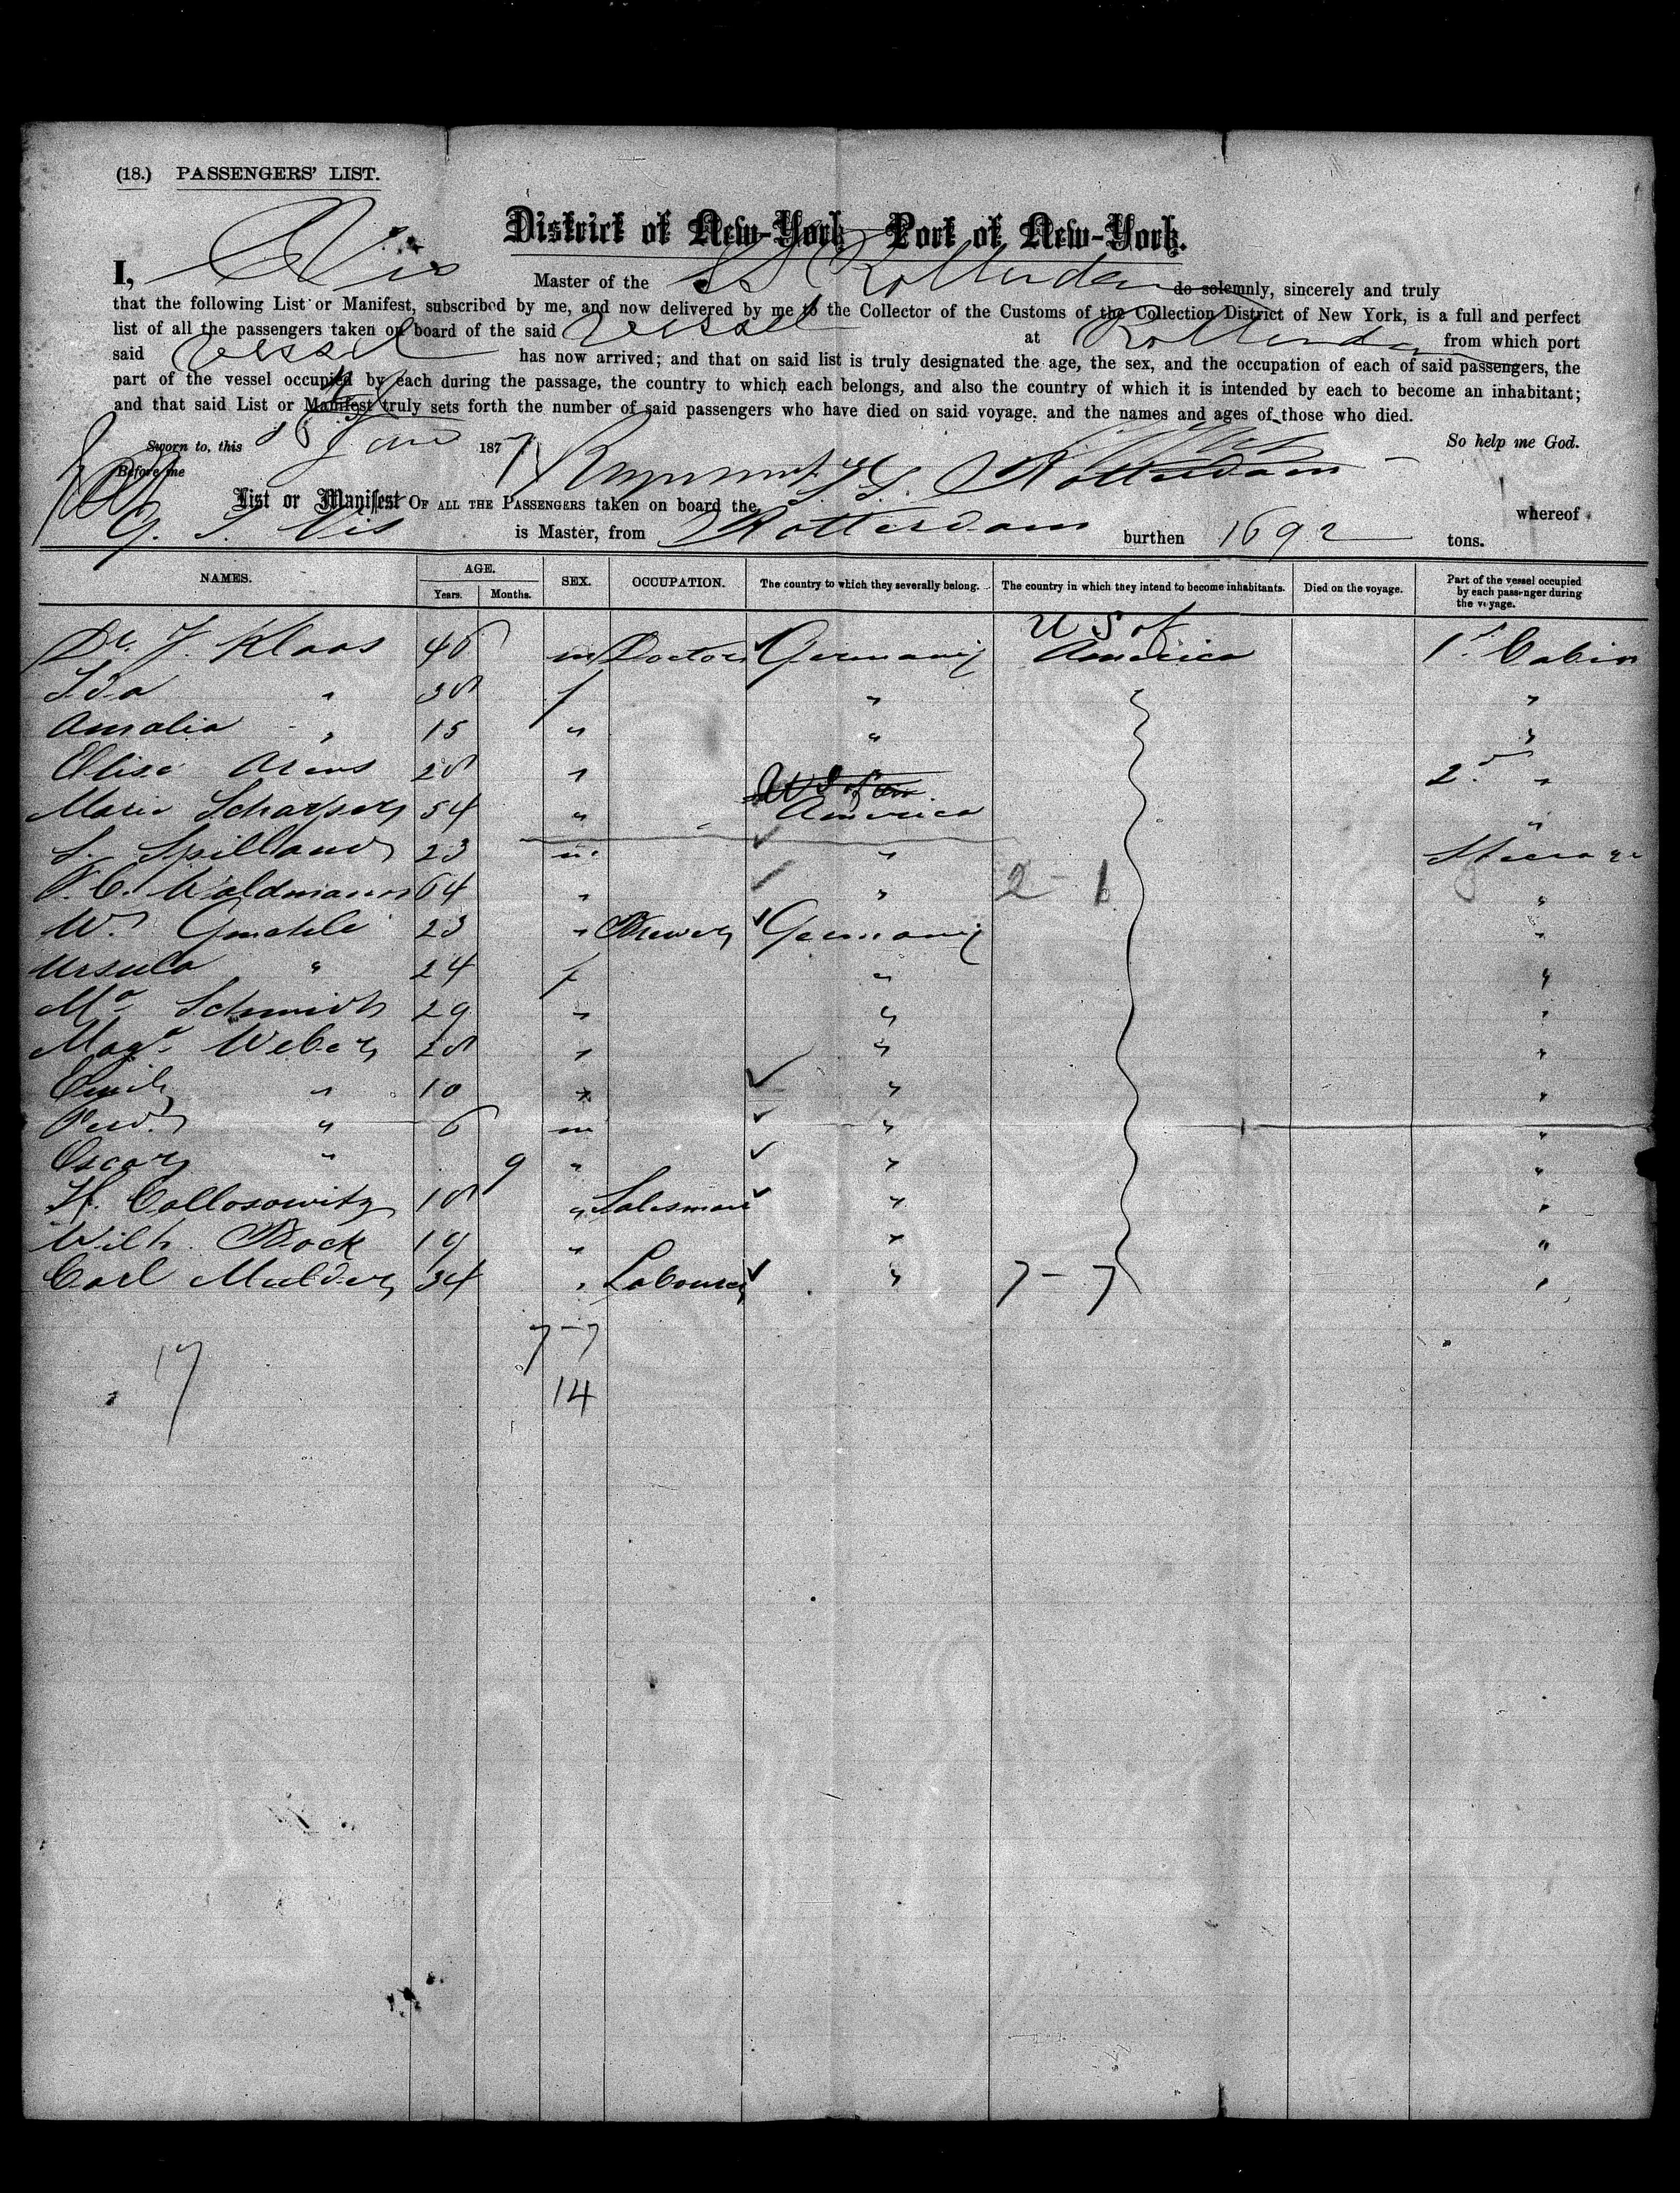 (18.) PASSENGERS' LIST.
District of New-York Port of New-York.
I, Vis Master of the SS Rotterdam do solemnly, sincerely and truly
that the following List or Manifest, subscribed by me, and now delivered by me to the Collector of the Customs of the Collection District of New York, is a full and perfect
list of all the passengers taken on board of the said Vessel at Rotterdam from which port
said Vessel has now arrived; and that on said list is truly designated the age, the sex, and the occupation of each of said passengers, the
part of the vessel occupied by each during the passage, the country to which each belongs, and also the country of which it is intended by each to become an inhabitant;
and that said List or Manifest truly sets forth the number of said passengers who have died on said voyage. and the names and ages of those who died.
Sworn to, this Jan 1877 So help me God.
Before me
List or Manifest OF ALL THE PASSENGERS taken on board the SS. Rotterdam whereof
G. J. Vis is Master, from Rotterdam burthen 1692 tons.
NAMES. AGE. Years. Months. SEX. OCCUPATION. The country to which they severally belong. The country in which they intend to become inhabitants. Died on the voyage. Part of the vessel occupied by each passenger during the voyage.
Dr. J. Klaas 46 m Doctor Germany U S of America 1st Cabin
Ida " 38 f " "
Amalia " 15 " " "
Elise Arens 28 " 2d "
Marie Scharper 54 " America "
S. Spilland 23 m " Steerage
Waldmann 64 " " 2 - 1 "
W. Gmahle 23 " Brewer Germany "
Ursula " 24 f " "
Ma Schmidt 29 " " "
Maga Weber 28 " " "
Emil " 10 " " "
Ferd. " 6 m " "
Oscar " 9 " " "
H. Collosowitz 18 " Salesman " "
Wilh. Bock 19 " " "
Carl Mulder 34 " Labourer " 7 - 7 "
7 - 7
17
14